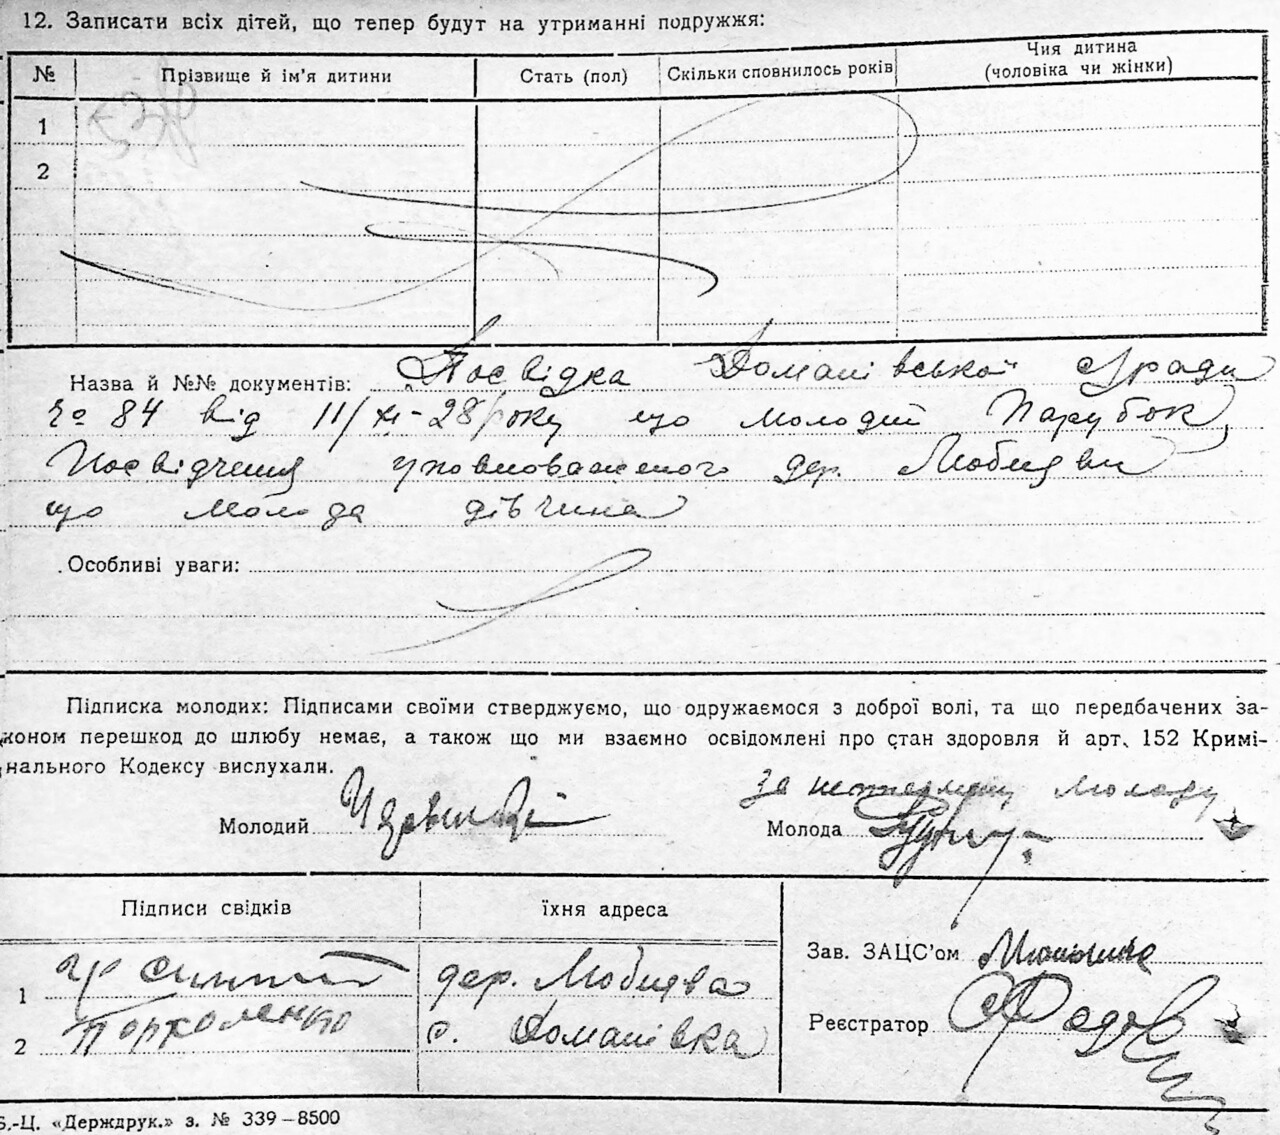 12. Записати всіх дітей, що тепер будут на утриманні подружжя:
№ Прізвище й ім'я дитини Стать (пол) Скільки сповнилось років Чия дитина (чоловіка чи жінки)
1
2
Назва й №№ документів: Посвідка Доманівської с/ради
№ 84 від 11/XI-28 року що молодий Парубок,
Посвідчення уповноваженого дер.
що молода дівчина
Особливі уваги:
Підписка молодих: Підписами своїми стверджуємо, що одружаємося з доброї волі, та що передбачених за-
коном перешкод до шлюбу немає, а також що ми взаємно освідомлені про стан здоровля й арт. 152 Кримі-
нального Кодексу вислухали.
За неписьменну молоду
Молодий Молода
Підписи свідків їхня адреса
Зав. ЗАЦС'ом
1 дер.
Реєстратор
2 с. Доманівка
Б.-Ц. «Держдрук.» з. № 339–8500